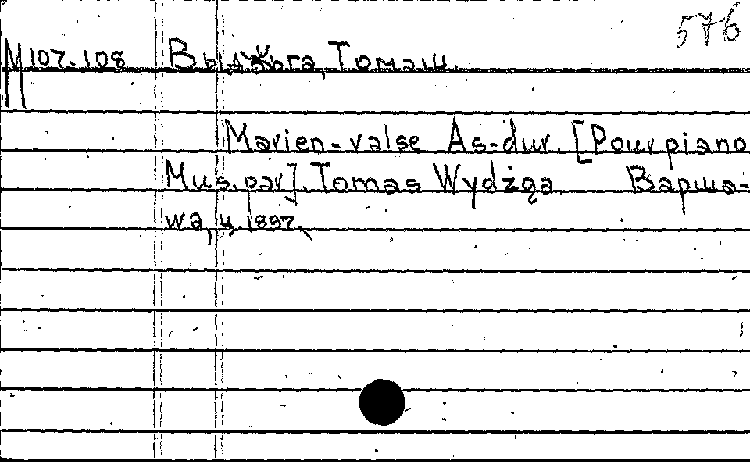 576
М 107-108 Выджга, Томаш.
Marien-valse As-dur. [Pour piano
Mus. par]. Tomas Wydżga. Варша-
wa, ц. 1897.